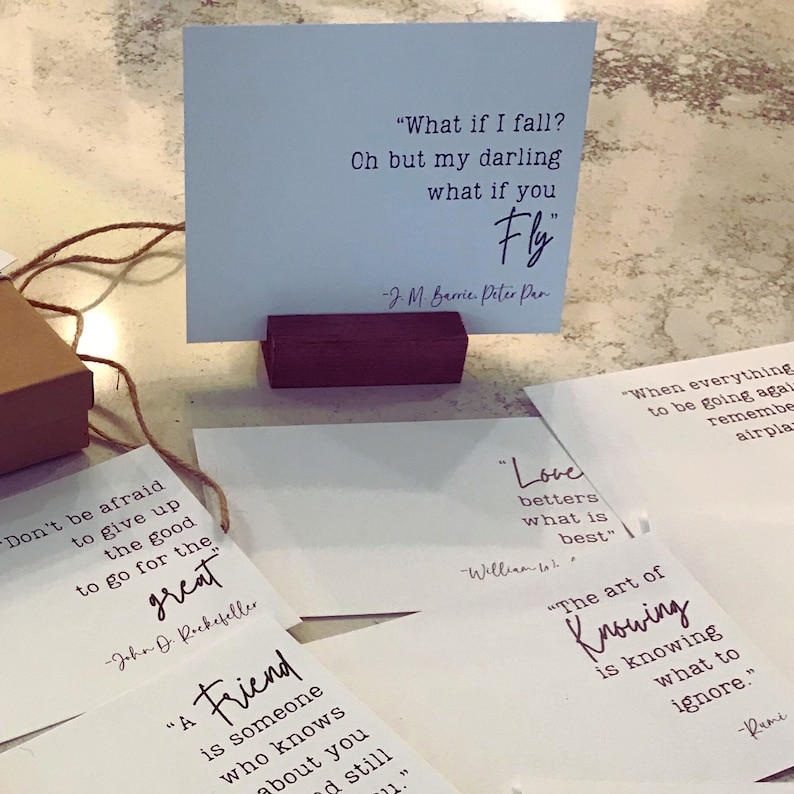 “What if I fall?
Oh but my darling
what if you
Fly”
-J. M. Barrie, Peter Pan
“When everything
to be going again
remember
airplan
“Love
betters
what is
best”
-William W.
“Don't be afraid
to give up
the good
to go for the
great”
-John D. Rockefeller
“The art of
Knowing
is knowing
what to
ignore.”
-Rumi
“A Friend
is someone
who knows
about you
d still
u.”